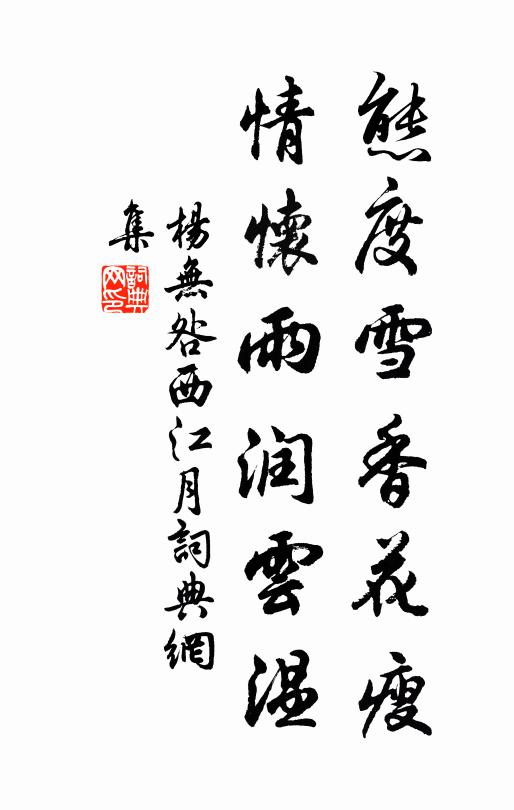 態度雪香花瘦
情懷雨润雲温
楊無咎西江月詞典網
集
詞典网印